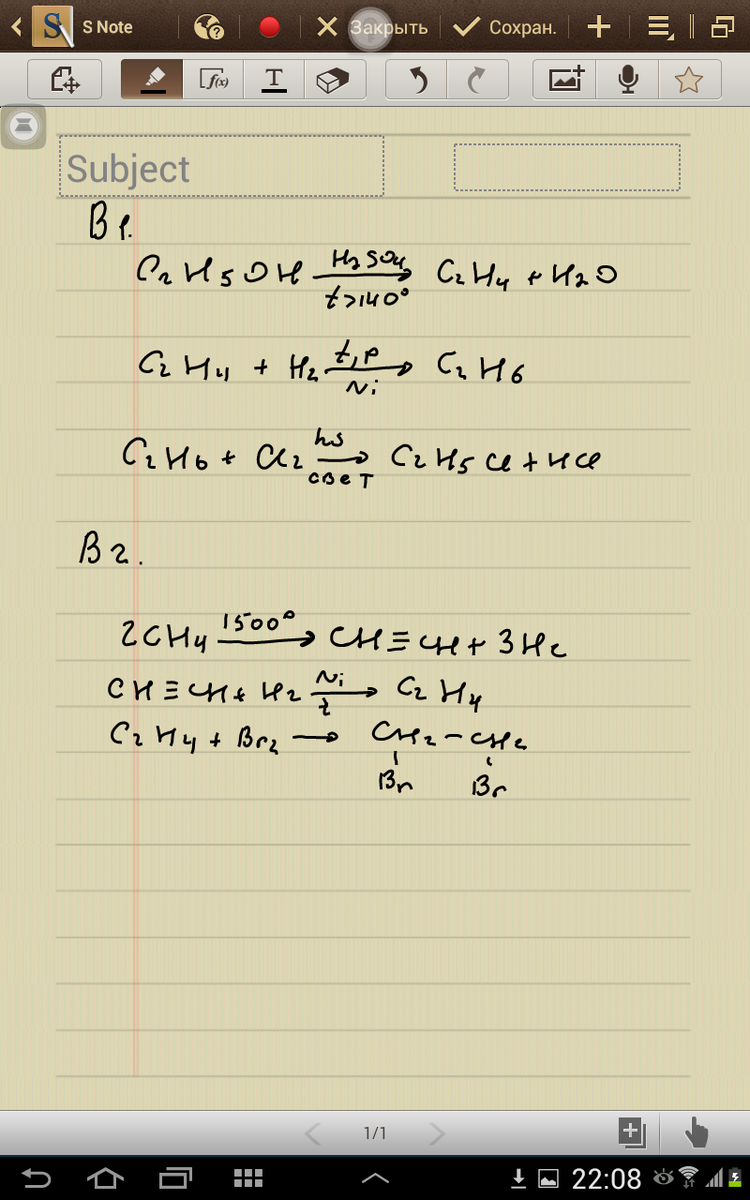 S Note
Закрыть
Сохран.
f(x)
T
Subject
В 1.
C₂H₅OH —H₂SO₄, t>140°→ C₂H₄ + H₂O
C₂H₄ + H₂ —t, p, Ni→ C₂H₆
C₂H₆ + Cl₂ —hν, свет→ C₂H₅Cl + HCl
В 2.
2CH₄ —1500°→ CH≡CH + 3H₂
CH≡CH + H₂ —Ni, t→ C₂H₄
C₂H₄ + Br₂ → CH₂–CH₂
Br Br
1/1
22:08